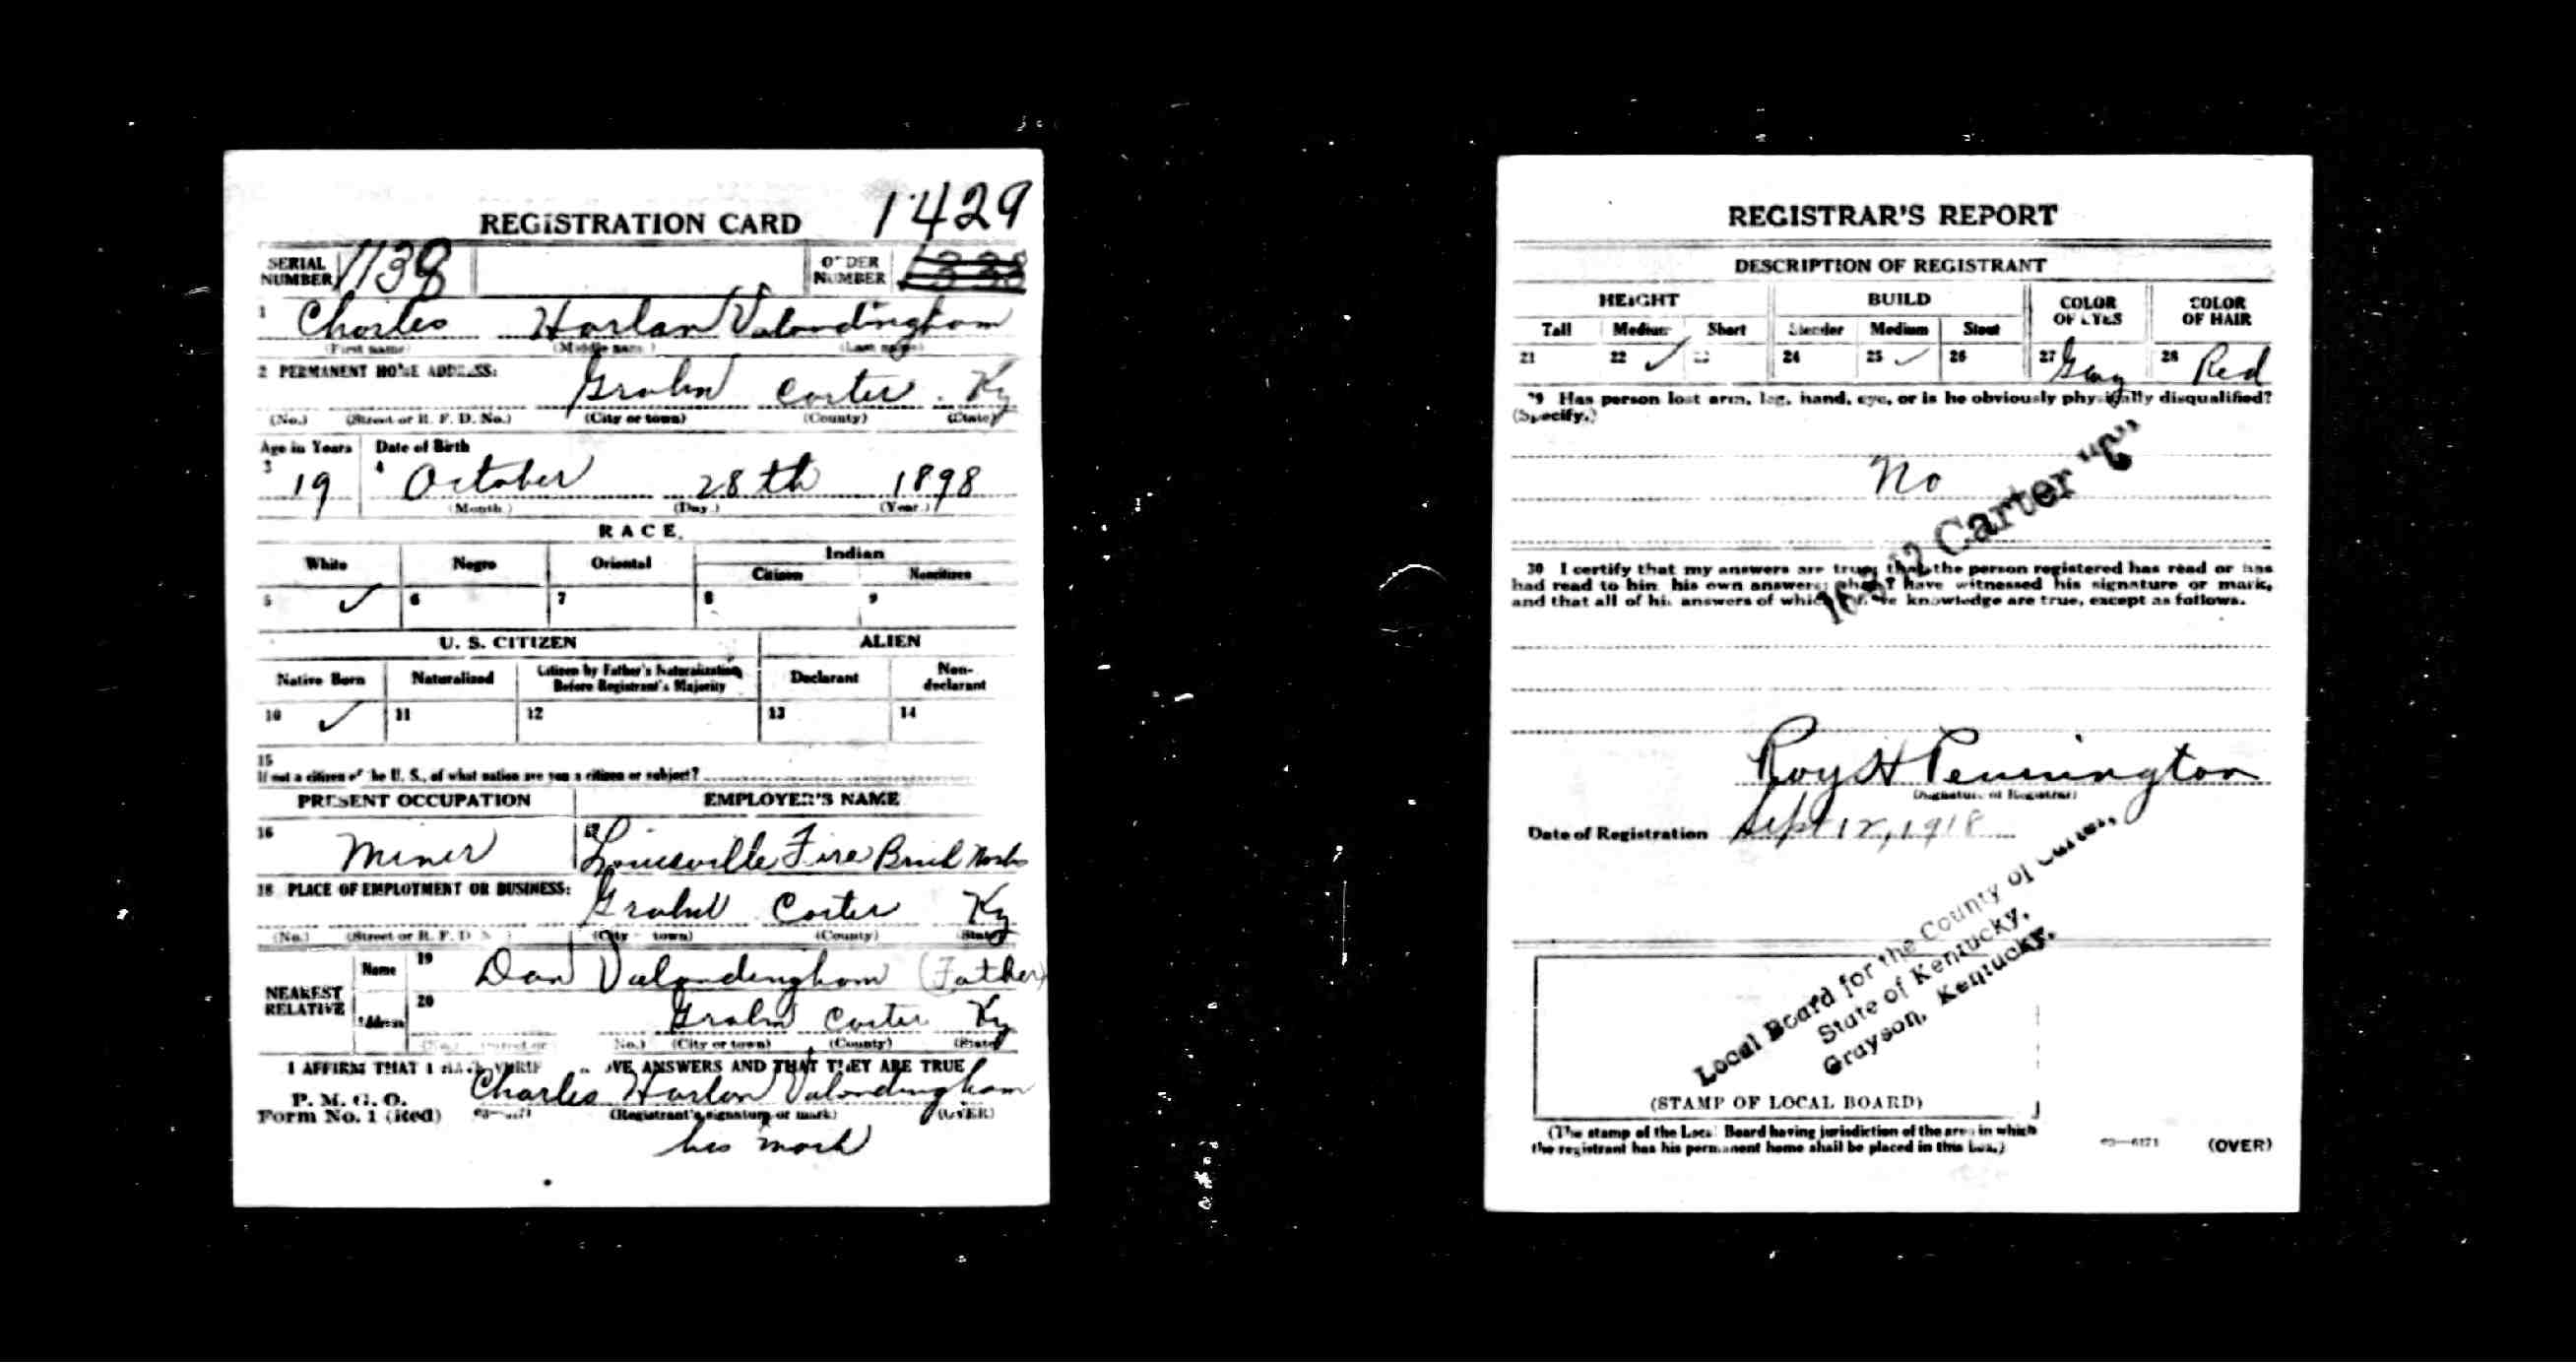 REGISTRATION CARD 1429
SERIAL NUMBER 1139 ORDER NUMBER 1338
1 Charles Harlan Valandingham
(First name) (Middle name) (Last name)
2 PERMANENT HOME ADDRESS: Grahn Carter Ky
(No.) (Street or R. F. D. No.) (City or town) (County) (State)
Age in Years Date of Birth
3 19 4 October 28th 1898
(Month.) (Day.) (Year.)
RACE
White Negro Oriental Indian
Citizen Noncitizen
5 ✓ 6 7 8 9
U. S. CITIZEN ALIEN
Native Born Naturalized Citizen by Father's Naturalization Before Registrant's Majority Declarant Non-declarant
10 ✓ 11 12 13 14
15
If not a citizen of the U. S., of what nation are you a citizen or subject?
PRESENT OCCUPATION EMPLOYER'S NAME
16 Miner 17 Louisville Fire Brick Works
18 PLACE OF EMPLOYMENT OR BUSINESS: Grahn Carter Ky
(No.) (Street or R. F. D. No.) (City or town) (County) (State)
NEAREST RELATIVE
Name 19 Dan Valandingham (Father)
Address 20 Grahn Carter Ky
No.) (City or town) (County) (State)
I AFFIRM THAT I HAVE VERIFIED ABOVE ANSWERS AND THAT THEY ARE TRUE
Charles Harlan Valandingham
P. M. G. O.
Form No. 1 (Red) (Registrant's signature or mark) (OVER)
his mark
REGISTRAR'S REPORT
DESCRIPTION OF REGISTRANT
HEIGHT BUILD COLOR OF EYES COLOR OF HAIR
Tall Medium Short Slender Medium Stout
21 22 ✓ 23 24 25 ✓ 26 27 Gray 28 Red
29 Has person lost arm, leg, hand, eye, or is he obviously physically disqualified?
(Specify.)
No
16-3-12 Carter "C"
30 I certify that my answers are true; that the person registered has read or has
had read to him his own answers; that I have witnessed his signature or mark,
and that all of his answers of which I have knowledge are true, except as follows.
Roy H Pennington
(Signature of Registrar)
Date of Registration Sept 12, 1918
Local Board for the County of Carter,
State of Kentucky,
Grayson, Kentucky.
(STAMP OF LOCAL BOARD)
(The stamp of the Local Board having jurisdiction of the area in which
the registrant has his permanent home shall be placed in this box.)
03—6171 (OVER)